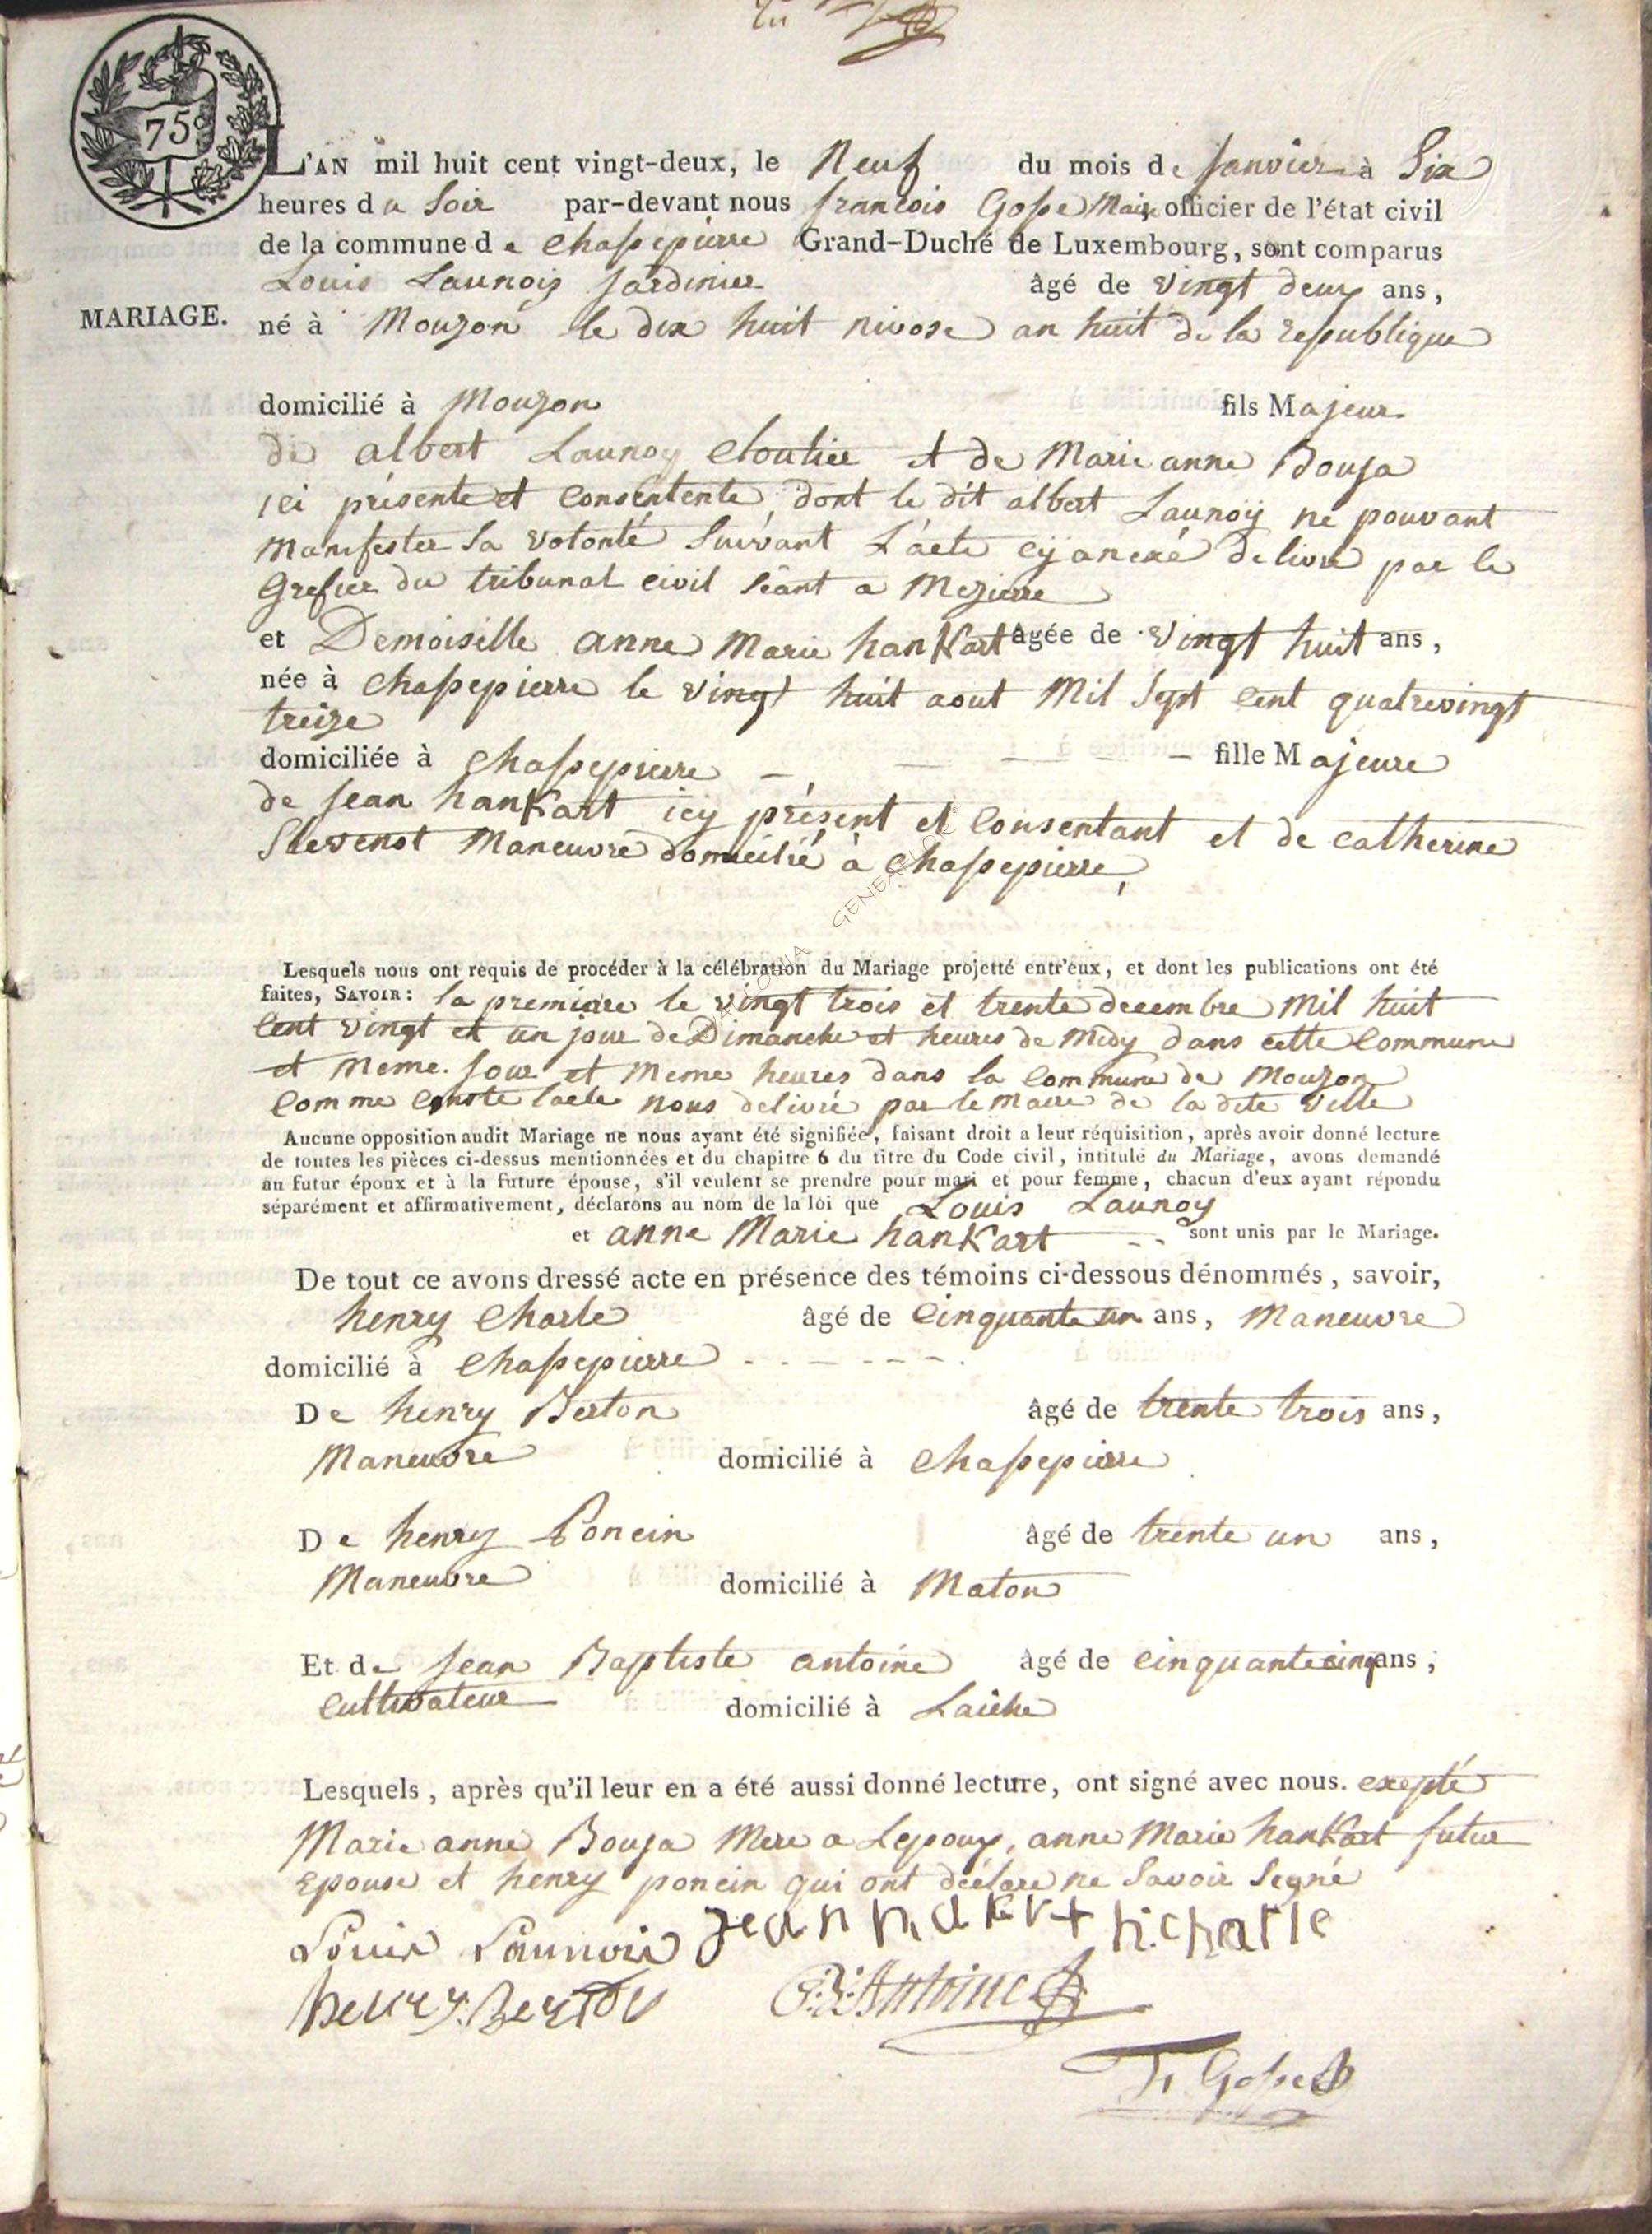 75c
L'AN mil huit cent vingt-deux, le Neuf du mois de janvier à Six
heures du Soir par-devant nous françois Gosse Maire officier de l'état civil
de la commune de Chassepierre Grand-Duché de Luxembourg, sont comparus
Louis Launois jardinier âgé de vingt deux ans,
MARIAGE.
né à Mouzon le dix huit nivose an huit de la republique
domicilié à Mouzon fils Majeur
de albert Launoy Cloutier et de Marie anne Bouja
ici présente et Consentente, dont le dit albert Launoÿ ne pouvant
Manifester Sa volonté Suivant L'acte cÿ anexé delivré par le
Grefier du tribunal civil séant a Mezierre
et Demoiselle anne Marie hanKart âgée de vingt huit ans,
née à Chassepierre le vingt huit aout Mil Sept Cent quatrevingt
treize
domiciliée à Chassepierre fille Majeure
de jean hanKart icy présent et Consentant et de Catherine
Slevenot Maneuvre domicilié à Chassepierre,
Lesquels nous ont requis de procéder à la célébration du Mariage projetté entr'eux, et dont les publications ont été
faites, SAVOIR: la premiere le vingt trois et trente decembre Mil huit
Cent vingt et un jour de Dimanche et heures de Midy dans cette Commune
et Meme jour et Meme heures dans la Commune de Mouzon
Comme Conste l'acte nous delivré par le Maire de la dite ville
Aucune opposition audit Mariage ne nous ayant été signifiée, faisant droit a leur réquisition, après avoir donné lecture
de toutes les pièces ci-dessus mentionnées et du chapitre 6 du titre du Code civil, intitulé du Mariage, avons demandé
au futur époux et à la future épouse, s'il veulent se prendre pour mari et pour femme, chacun d'eux ayant répondu
séparément et affirmativement, déclarons au nom de la loi que Louis Launoy
et anne Marie hanKart sont unis par le Mariage.
De tout ce avons dressé acte en présence des témoins ci-dessous dénommés, savoir,
henry Charle âgé de Cinquante un ans, Maneuvre
domicilié à Chassepierre
De henry Berton âgé de trente trois ans,
Maneuvre domicilié à Chassepierre
De henry Poncin âgé de trente un ans,
Maneuvre domicilié à Maton
Et de jean Baptiste antoine âgé de cinquante cinq ans,
Cultivateur domicilié à Laiche
Lesquels, après qu'il leur en a été aussi donné lecture, ont signé avec nous. excepté
Marie anne Bouja Mere a Lepoux, anne Marie hanKart futur
Epouse et henry poncin qui ont déclare ne Savoir Segné
Louis Launois jean hankart h. charle
henry. Berton J:B: Antoine
F Gosse
GENEALOGIE